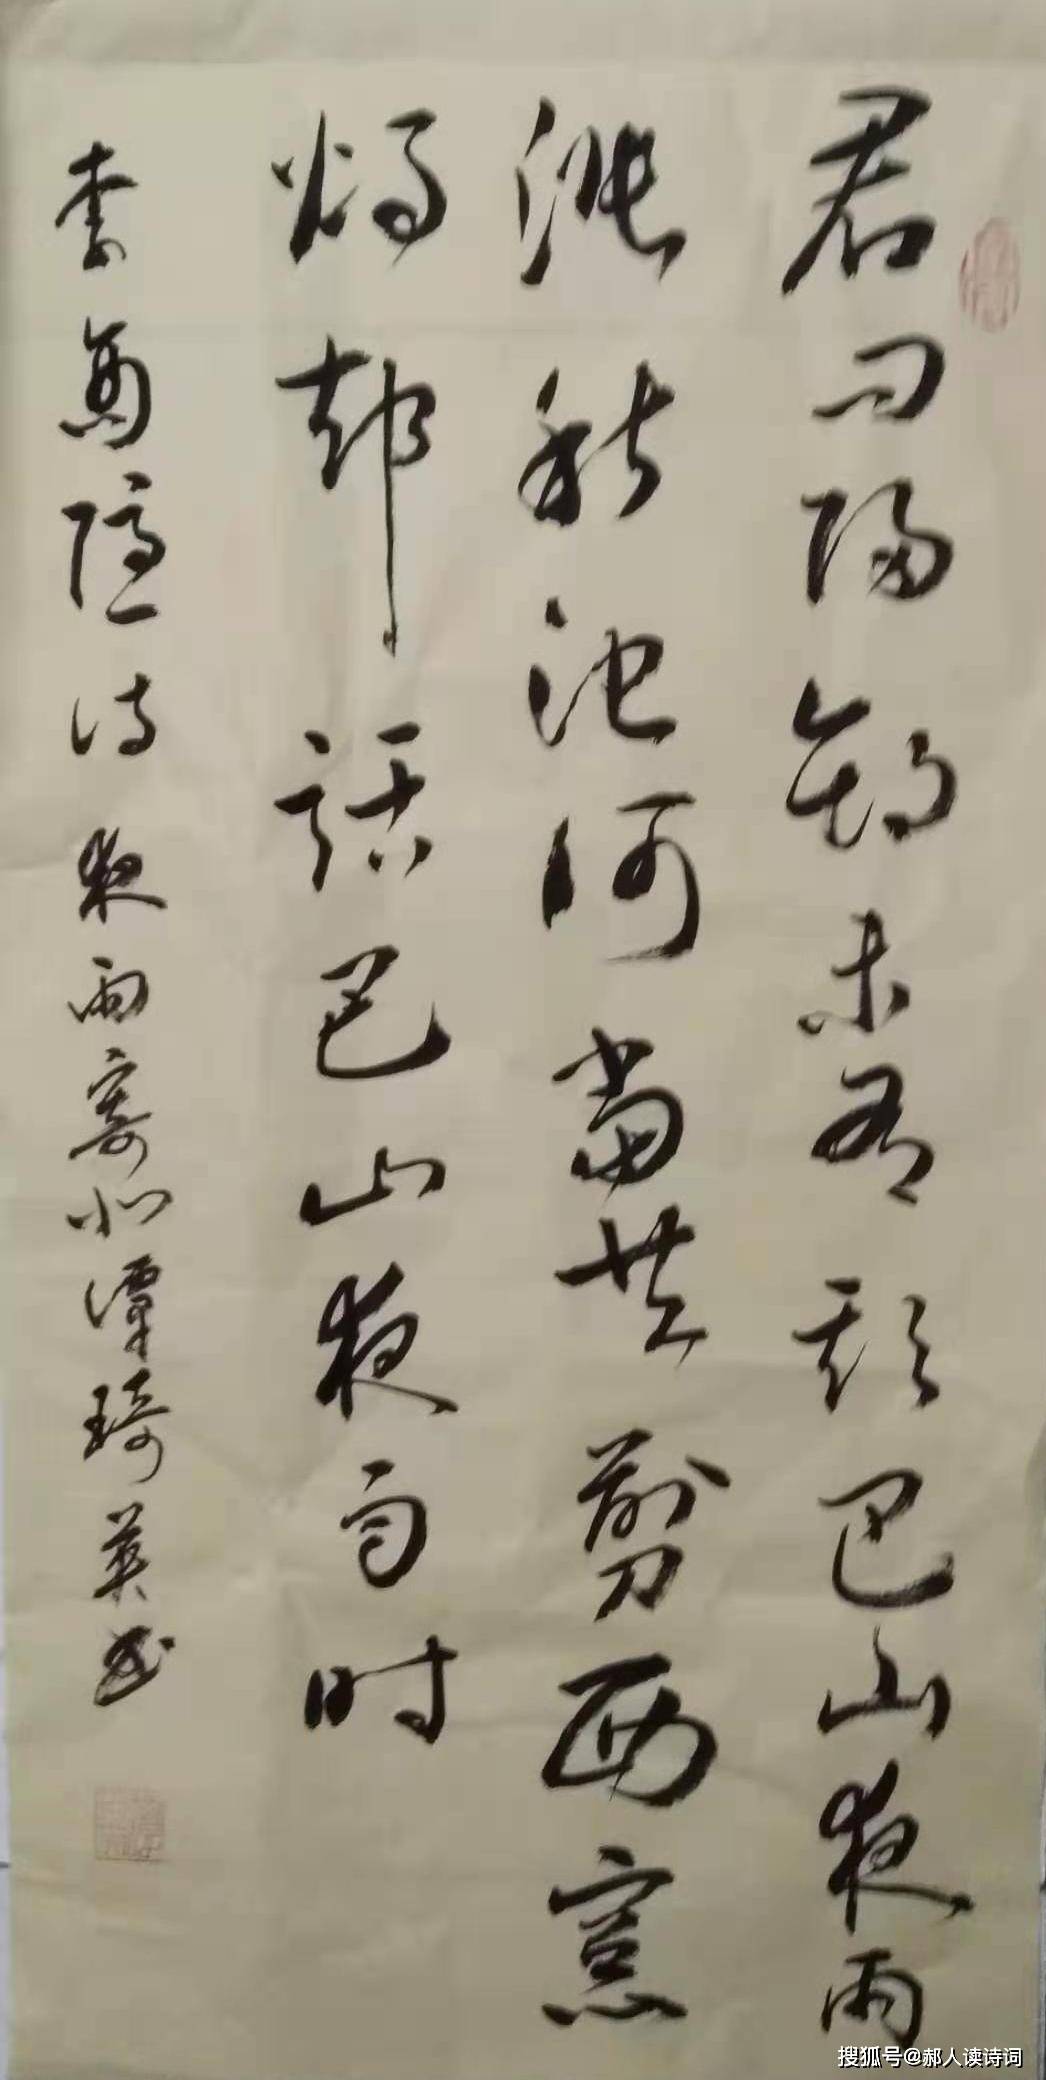 君问归期未有期巴山夜雨
涨秋池何当共剪西窗
烛却話巴山夜雨时
李商隐诗夜雨寄北谭琦英书
搜狐号@郝人读诗词